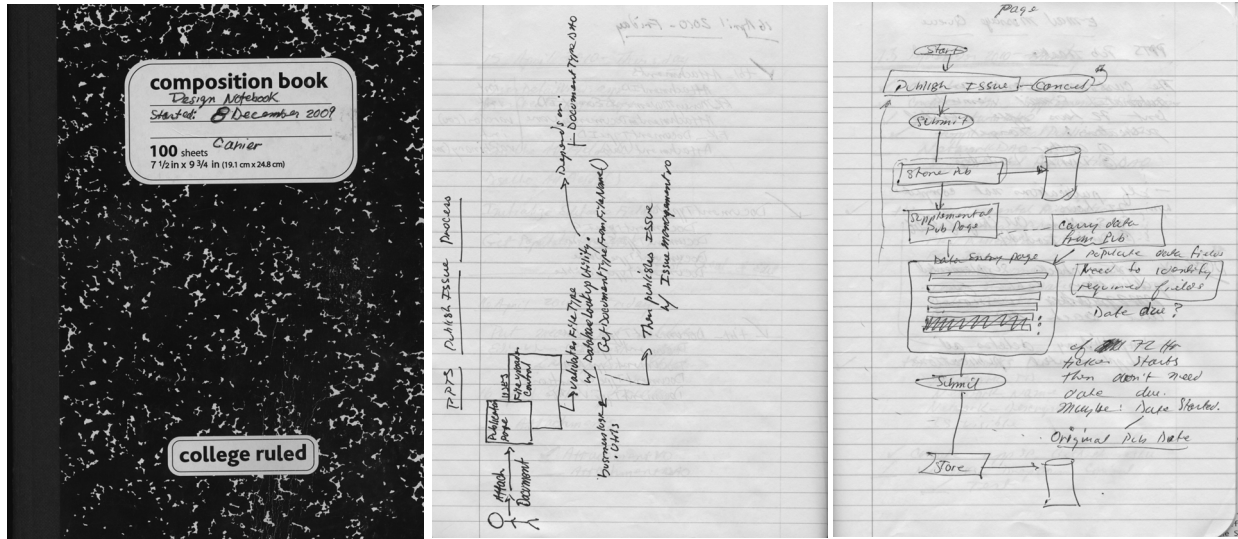 composition book
Design Notebook
Started: 8 December 2009
Carier
100 sheets
7 1/2 in x 9 3/4 in (19.1 cm x 24.8 cm)
college ruled
16 April 2010 - Friday
Publish Issue Process
Attach
Document
Publish
Page
USES
Control
Validates File Type
w/ Database Lookup Utility.
Get Document Type From File Name()
Depends on:
Document Type DAO
business use
Then publishes Issue
w/ Issue management
Page
Start
Publish Issue
Cancel
Submit
Store Pub
Supplemental
Pub Page
carry data
from Pub
populate data fields
Data Entry page
Need to identify
required fields
Date due?
if 72 Hr
ticker starts
then don't need
date due.
Maybe: Date Started.
Submit
Original Pub Date
Store